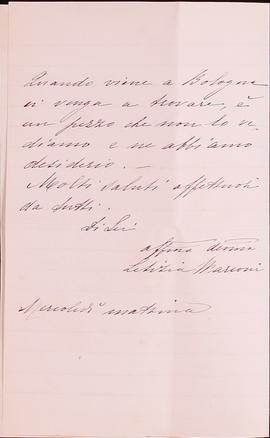 Quando viene a Bologna
ci venga a trovare, è
un pezzo che non lo ve-
diamo e ne abbiamo
desiderio. —
Molti saluti affettuosi
da tutti.
Di Lei
affma
Letizia Marconi
Mercoledì mattina